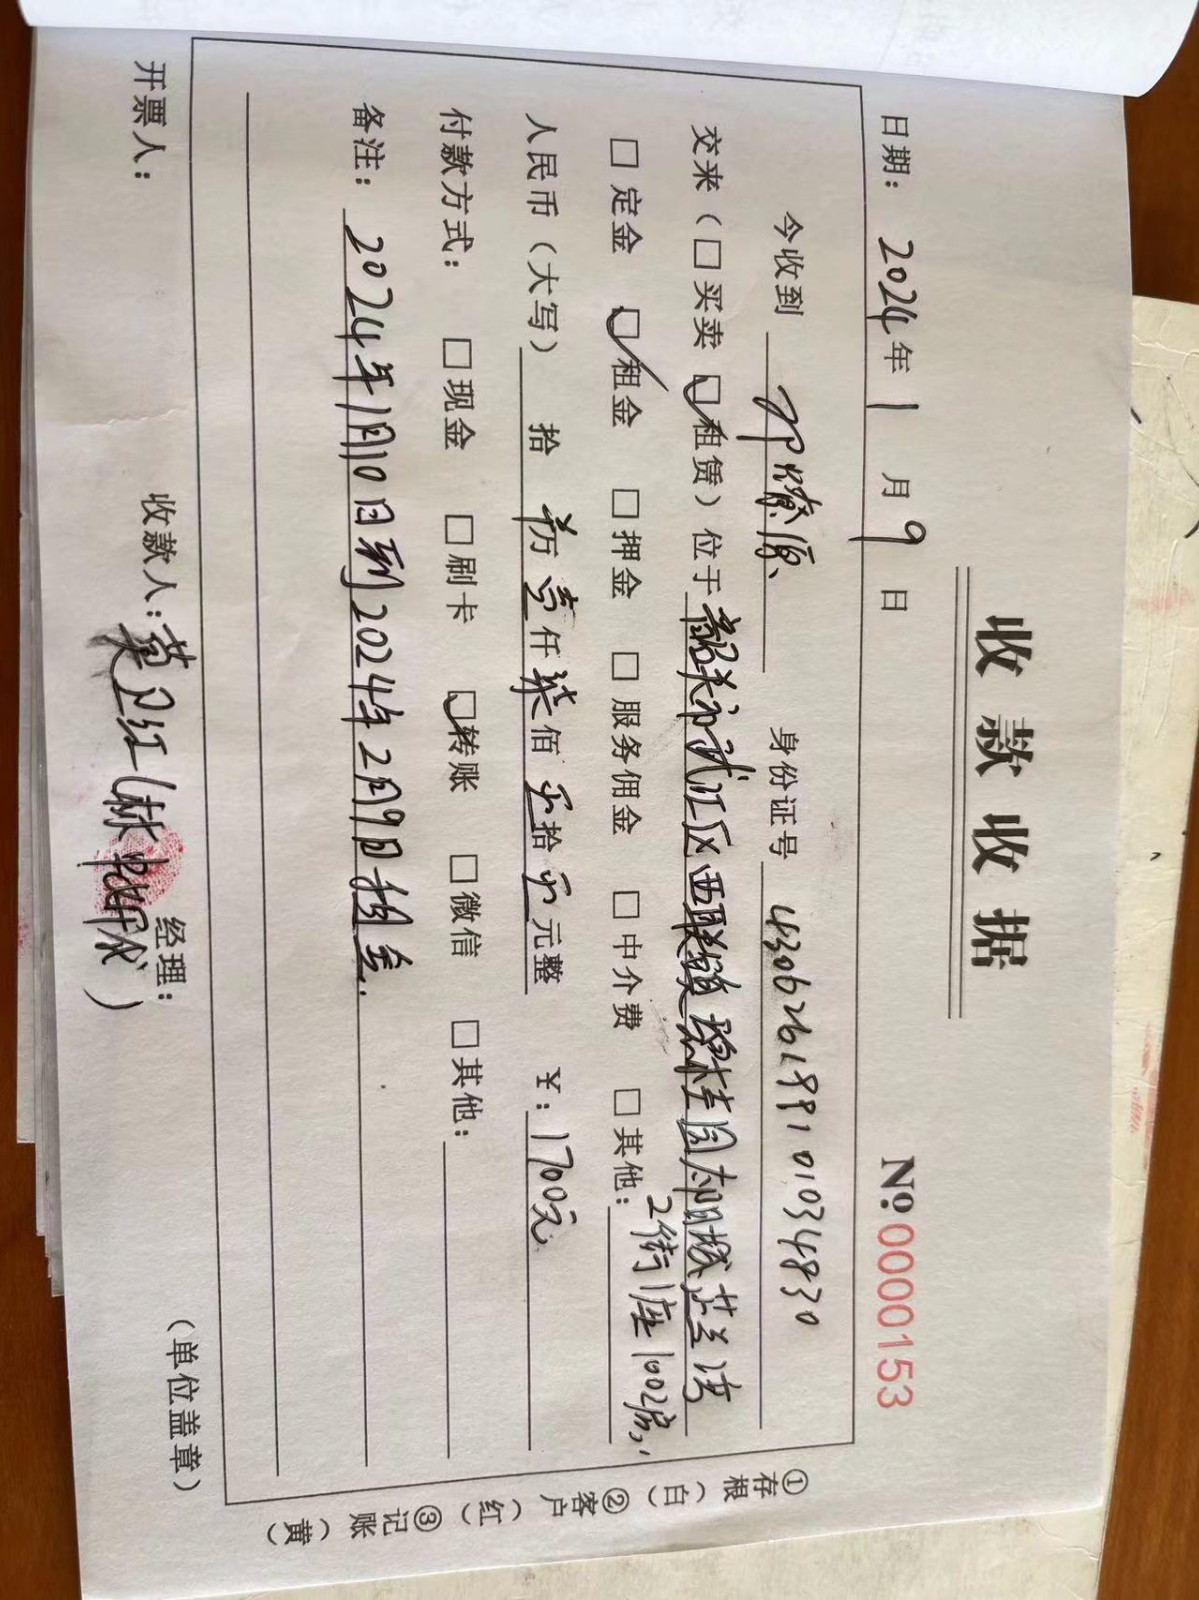 收款收据
日期：2024年1月9日 №0000153
今收到 身份证号 430626199101034830
交来（□买卖 ☑租赁）位于韶关市武江区西联镇碧桂园太阳城芷兰湾
2街1座1002房
□定金 ☑租金 □押金 □服务佣金 □中介费 □其他：
人民币（大写） 拾 万壹仟柒佰零拾零元整 ￥：1700元
付款方式：□现金 □刷卡 ☑转账 □微信 □其他：
备注：2024年1月10日到2024年2月9日租金.
开票人： 收款人：莫卫红 经理： （单位盖章）
①存根（白）②客户（红）③记账（黄）